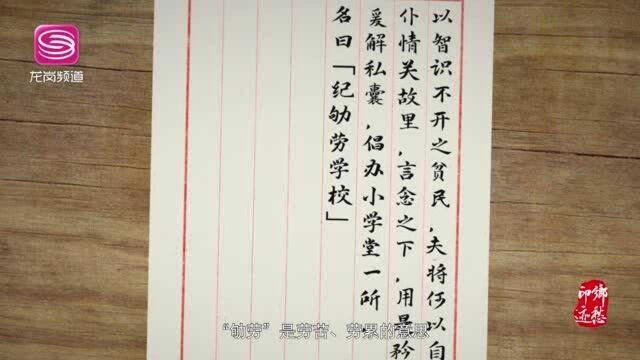 龙岗频道
以智识不开之贫民,夫将何以自
仆情关故里,言念之下,用是矜
爰解私囊,倡办小学堂一所,
名曰「纪劬劳学校」
“劬劳”是劳苦、劳累的意思
印迹
乡愁